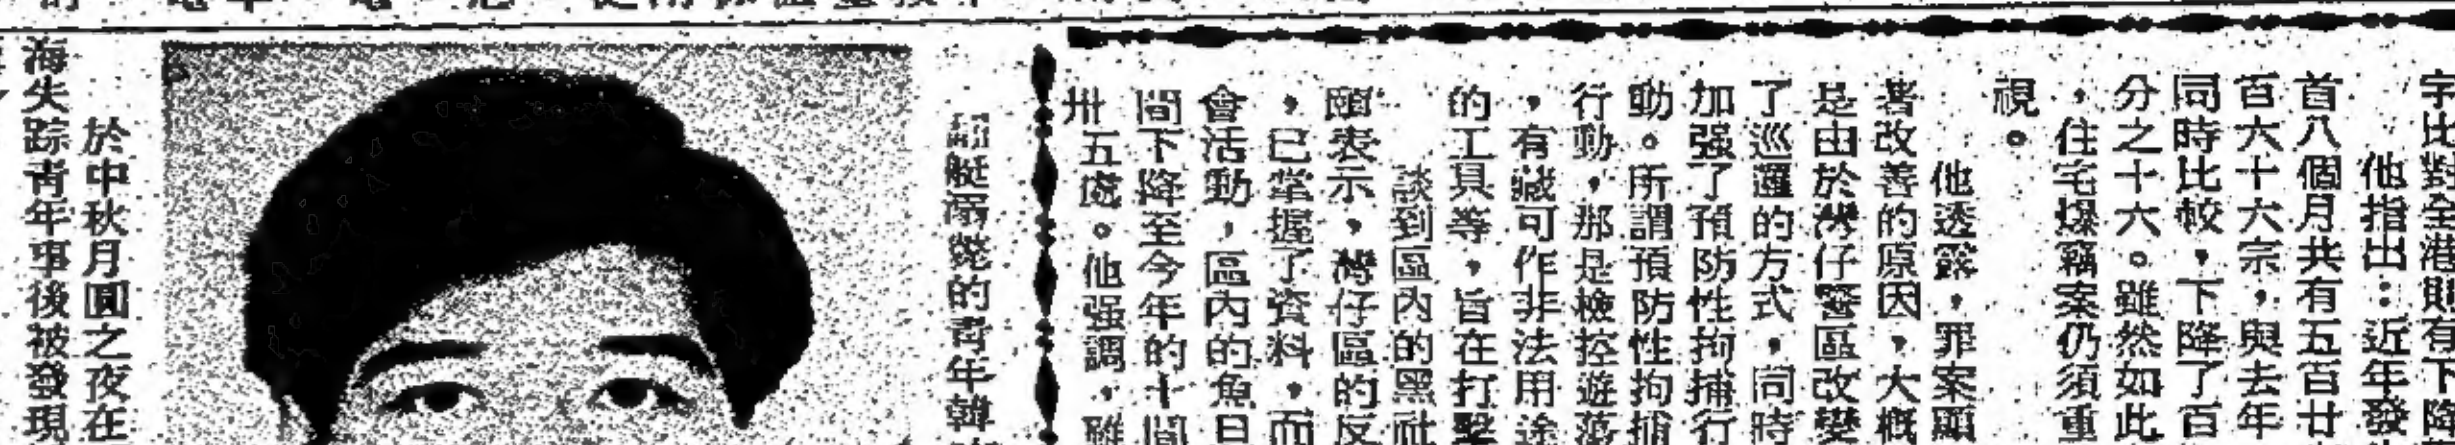 字比對全港則有下降
他指出：近年發
首八個月共有五百廿
百六十六宗，與去年
同時比較，下降了百
分之十六。雖然如此
，住宅爆竊案仍須重
視。
他透露，罪案顯
著改善的原因，大概
是由於灣仔警區改變
了巡邏的方式，同時
加强了預防性拘捕行
動。所謂預防性拘捕
行動，那是檢控遊蕩
，有藏可作非法用途
的工具等，旨在打擊
談到區內的黑社
願表示，灣仔區的反
，已掌握了資料，而
會活動，區內的魚日
間下降至今年的十間
卅五處。他强調，雖
艇溺斃的青年韓
於中秋月圓之夜在
海失踪青年事後被發現